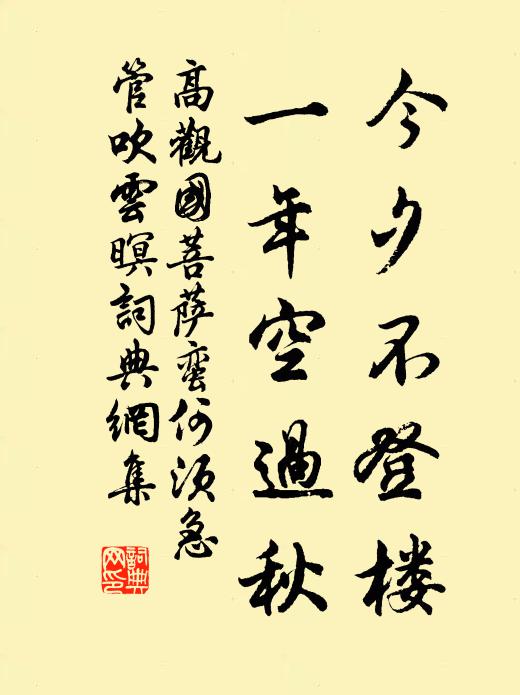 今夕不登楼
一年空過秋
高觀國菩萨蛮何須急
管吹雲暝詞典網集
詞典网印